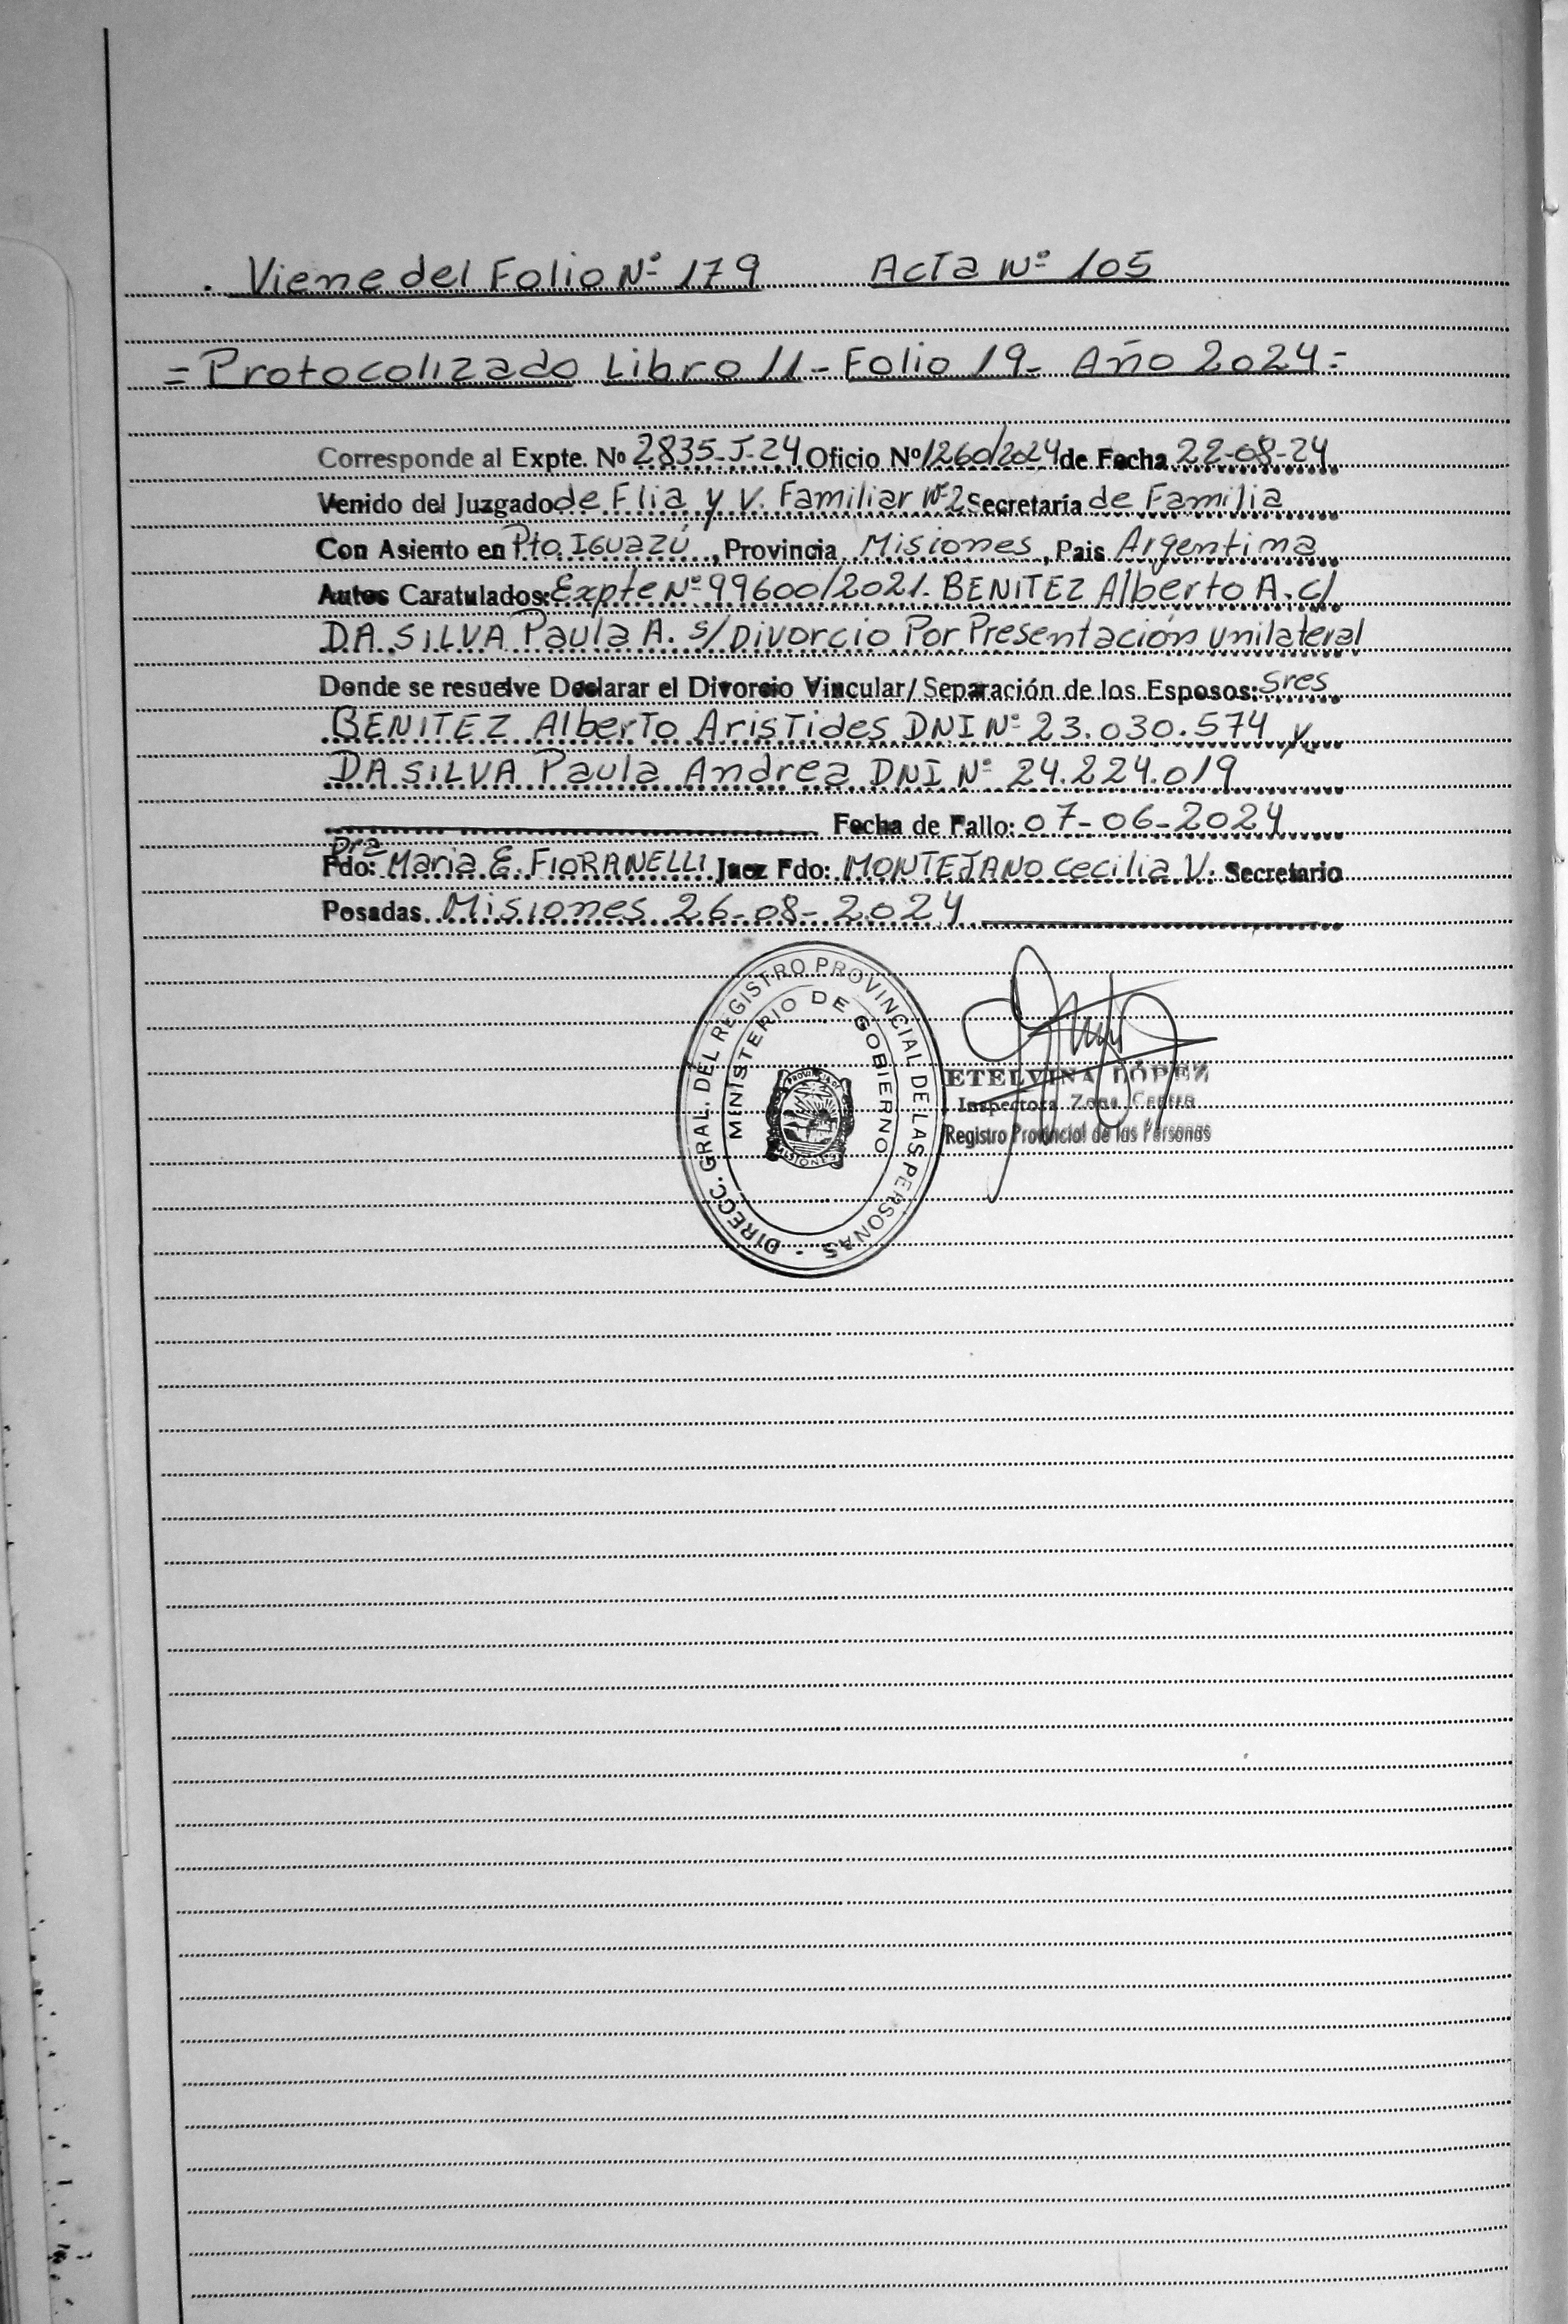 Viene del Folio Nº 179 Acta Nº 105
= Protocolizado Libro 11 - Folio 19 - Año 2024 =
Corresponde al Expte. Nº 2835-J-24 Oficio Nº 1260/2024 de Fecha 22-08-24
Venido del Juzgado de Flia y V. Familiar Nº2 Secretaría de Familia
Con Asiento en Pto Iguazú, Provincia Misiones, Pais Argentina
Autos Caratulados: Expte Nº 99600/2021. BENITEZ Alberto A. c/
DA SILVA Paula A. s/ Divorcio Por Presentación unilateral
Donde se resuelve Declarar el Divorcio Vincular/ Separación de los Esposos: Sres
BENITEZ Alberto Aristides DNI Nº 23.030.574 y
DA SILVA Paula Andrea DNI Nº 24.224.019
Fecha de Fallo: 07-06-2024
Dra
Fdo: Maria E. FIORANELLI Juez Fdo: MONTEJANO Cecilia V. Secretario
Posadas Misiones 26-08-2024
DIRECC. GRAL. DEL REGISTRO PROVINCIAL DE LAS PERSONAS -
MINISTERIO DE GOBIERNO
PROVINCIA DE
MISIONES
ETELVINA LÓPEZ
Inspectora Zona Centro
Registro Provincial de las Personas